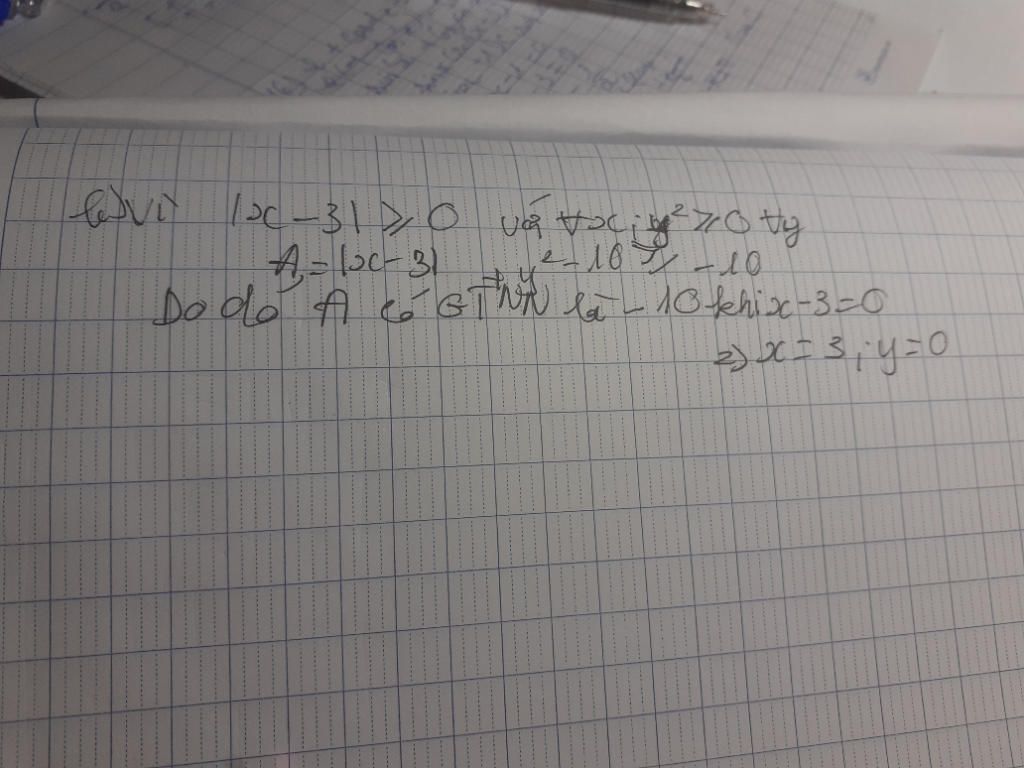 b) Vì |x - 3| ≥ 0 vớ ∀x; y² ≥ 0 ∀y
A = |x - 3| + y² - 10 ≥ -10
Do đó A có GTNN là -10 khi x - 3 = 0
=> x = 3; y = 0